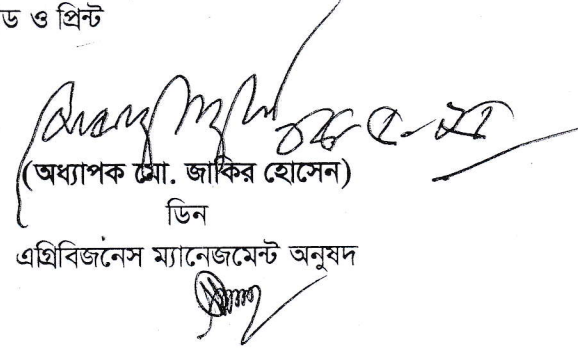 ড ও প্রিন্ট
(অধ্যাপক মো. জাকির হোসেন)
ডিন
এগ্রিবিজনেস ম্যানেজমেন্ট অনুষদ